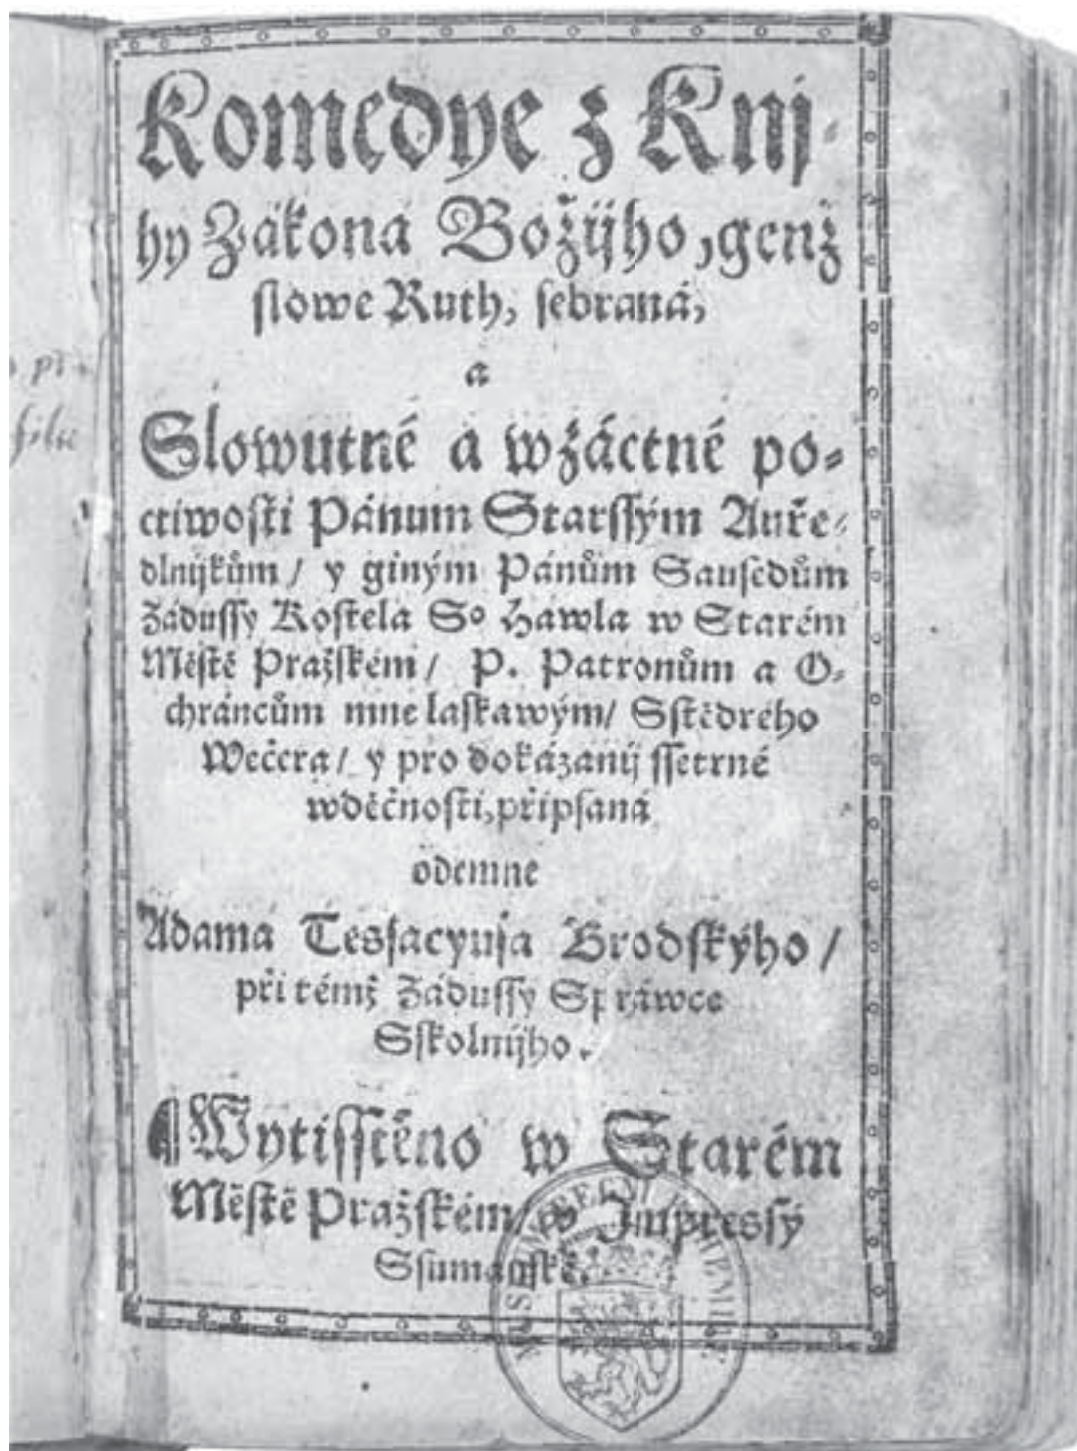 Komedye z Knj-
hy Zákona Božijho, genž
slowe Ruth, sebraná,
a
Slowutné a wzáctné po-
ctiwosti Pánum Starssým Auře-
dlnijkům / y giným Pánům Sausedům
Zádussy Kostela So Hawla w Starém
Městě Pražském / P. Patronům a O-
chráncům mne laskawým / Sstědrého
Wečera / y pro dokázanij ssetrné
wděčnosti, připsaná
odemne
Adama Tesacyusa Brodskýho /
při témž Zádussy Spráwce
Sskolnijho.
Wytisstěno w Starém
Městě Pražském / w Impressý
Ssumanské.